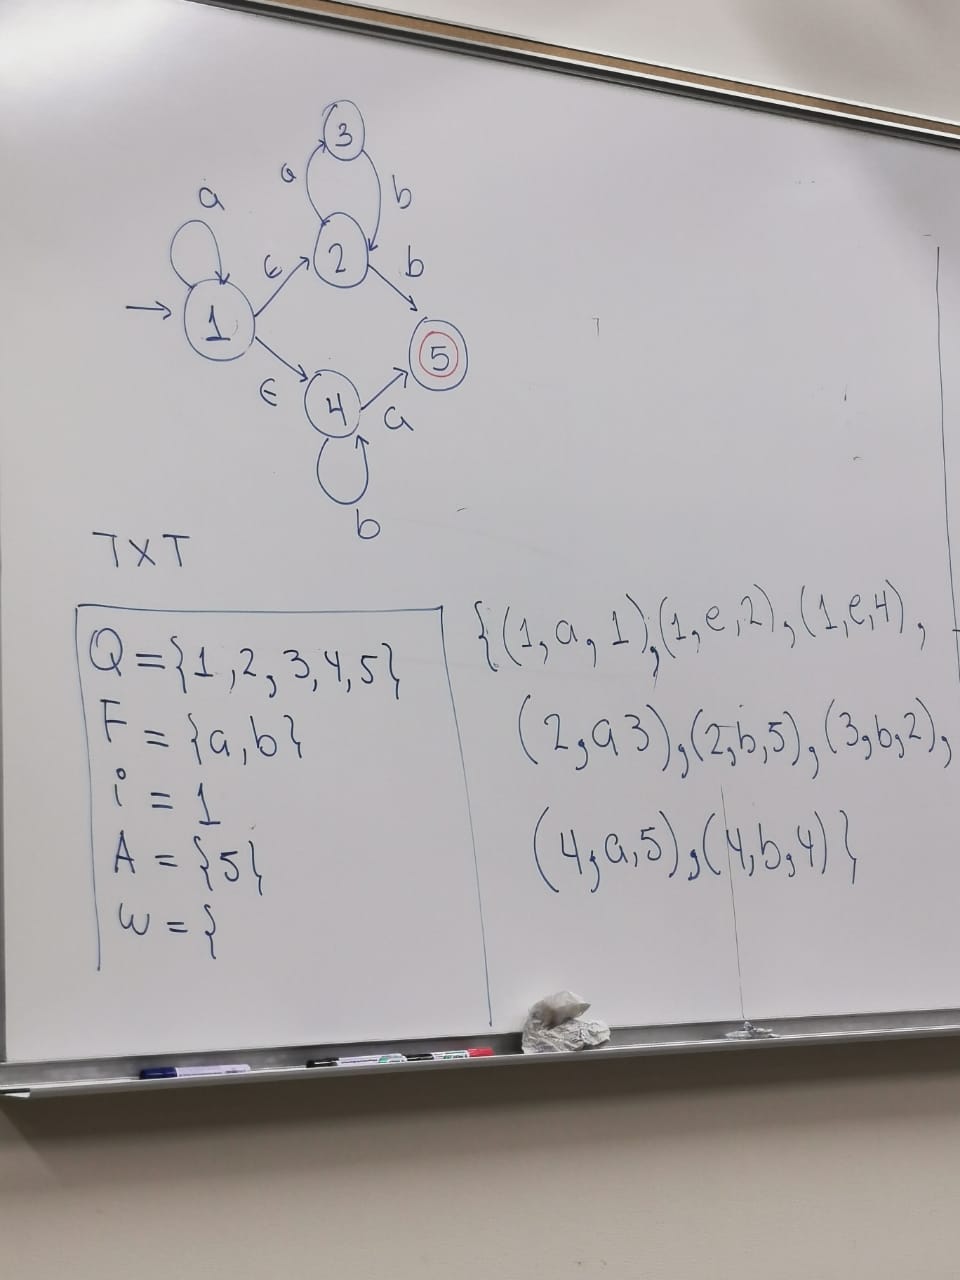 3
a
a
b
ϵ
2
b
1
5
ϵ
4
a
b
TXT
Q = {1,2,3,4,5}
F = {a,b}
i = 1
A = {5}
w = {
{(1,a,1),(1,e,2),(1,e,4),
(2,a3),(2,b,5),(3,b,2),
(4,a,5),(4,b,4)}